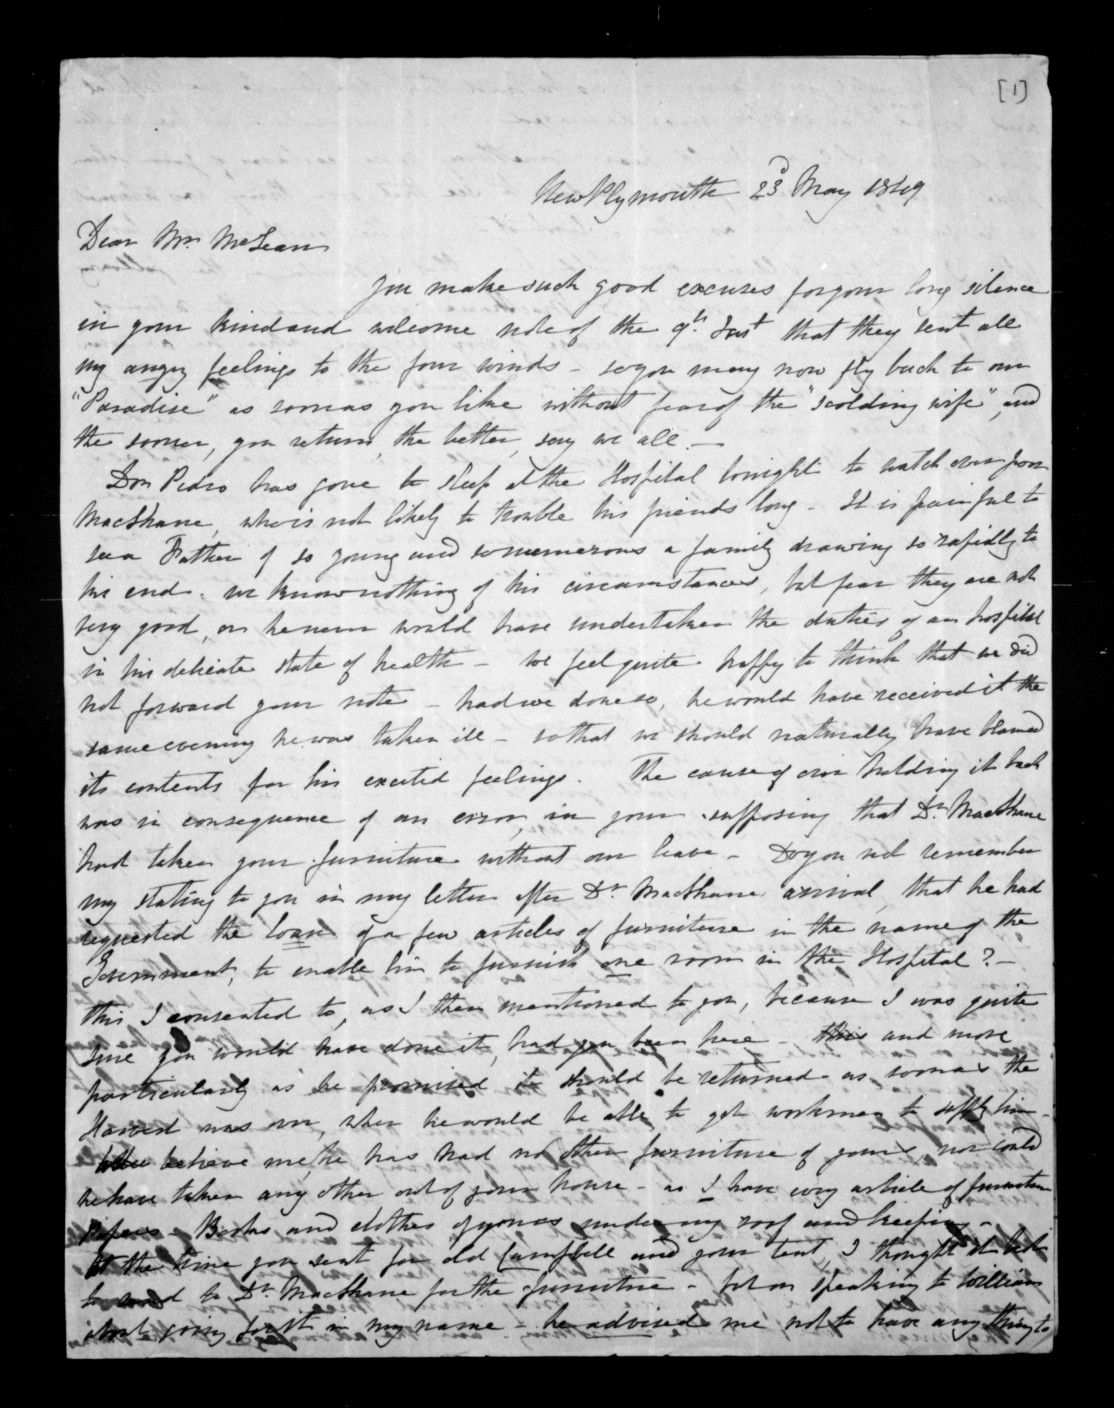 [1]
New Plymouth 23d May 1849
Dear Mr McLean
You make such good excuses for your long silence
in your kind and welcome note of the 9th Inst that they sent all
my angry feelings to the four winds - so you may now fly back to our
"Paradise" as soon as you like without fear of the "scolding wife", and
the sooner, you return, the better, say we all. -
Don Pedro has gone to sleep at the Hospital tonight to watch over poor
MacShane, who is not likely to trouble his friends long - It is painful to
see a Father of so young and so numerous a family drawing so rapidly to
his end. we know nothing of his circumstances, but fear they are not
very good, or he never would have undertaken the duties of an hospital
in his delicate state of health - we feel quite happy to think that we did
not forward your note - had we done so, he would have received it the
same evening he was taken ill - so that we should naturally have blamed
its contents for his excited feelings. The cause of our holding it back
was in consequence of an error, in your supposing that Dr. MacShane
had taken your furniture without our leave - Do you not remember
my stating to you in my letter after Dr MacShane arrival, that he had
requested the loan of a few articles of furniture in the name of the
Government, to enable him to furnish one room in the Hospital? -
this I consented to, as I then mentioned to you, because I was quite
sure you would have done it, had you been here - this and more
particularly as he promised it should be returned as soon as the
Harvest was over, when he would be able to get workmen to supply him -
believe me he has had no other furniture of yours nor could
he have taken any other out of your house - as I have every article of furniture
Papers - Books and clothes of yours under my roof and keeping -
At the time you sent for old Campbell and your tent, I thought it best
to send to Dr. MacShane for the furniture - but on speaking to William
about going for it in my name - he advised me not to have any thing to